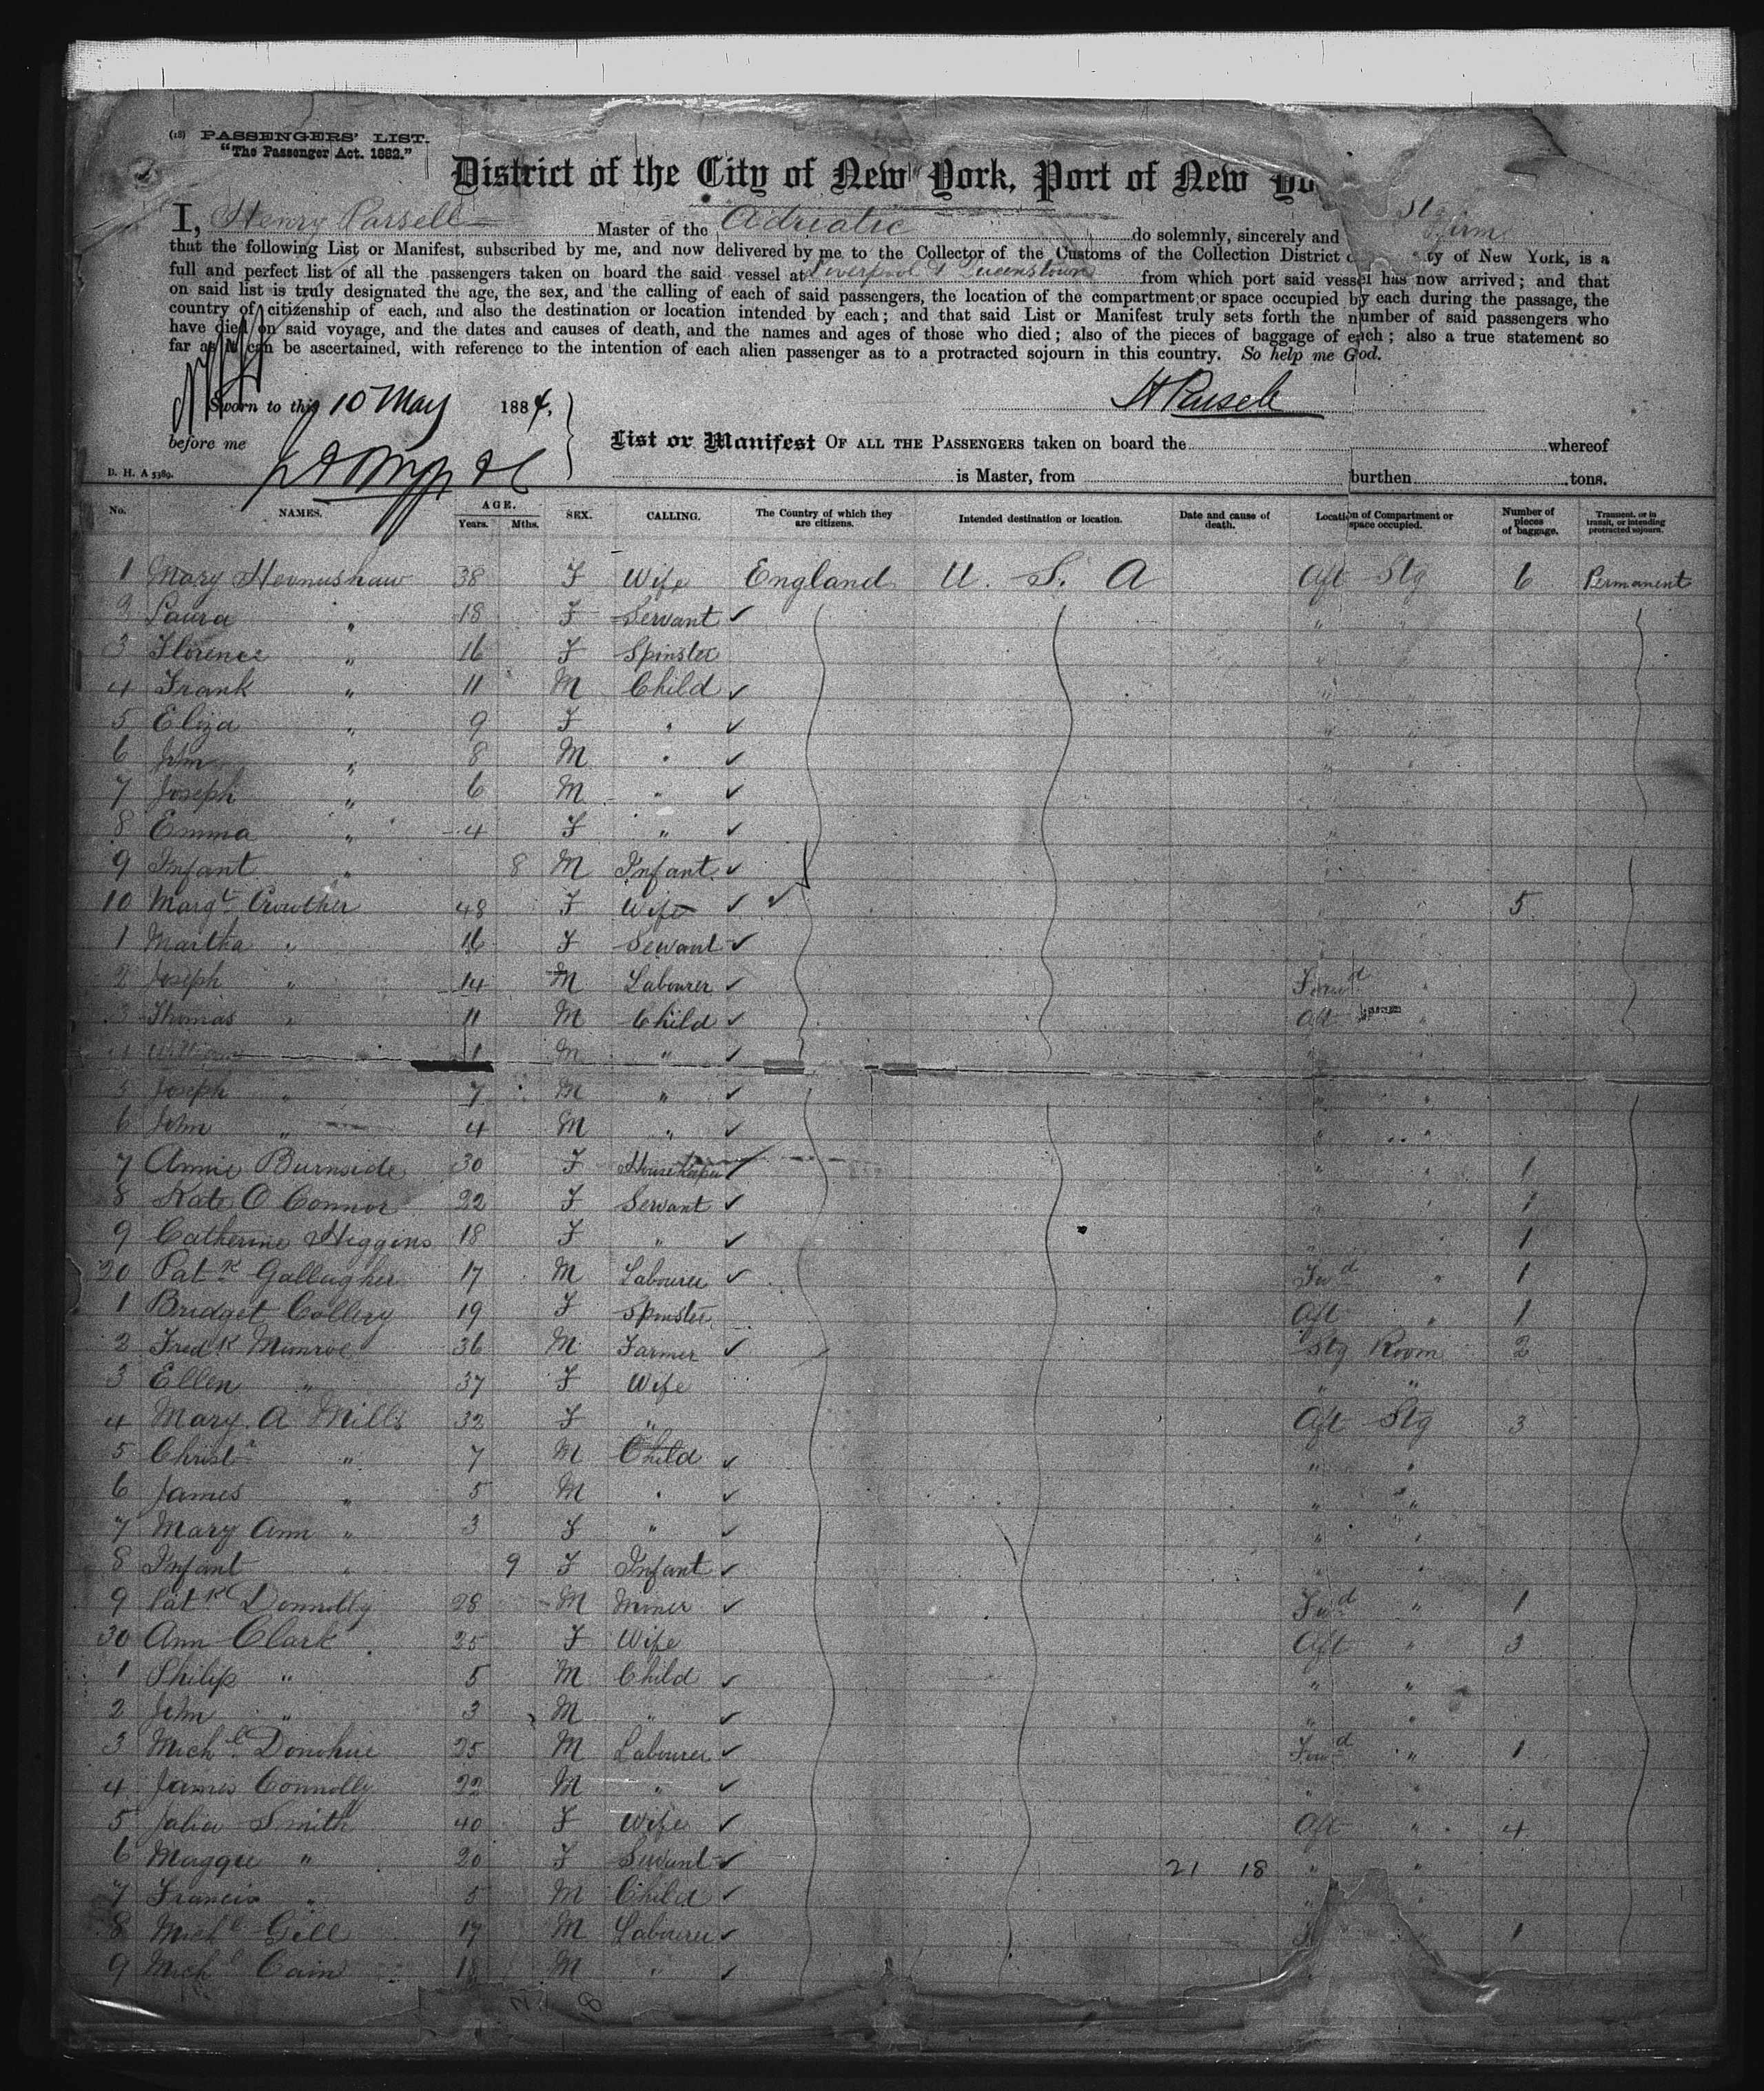 (18) PASSENGERS' LIST.
"The Passenger Act. 1882."
District of the City of New York, Port of New Yo
I, Henry Parsell Master of the Adriatic do solemnly, sincerely and
that the following List or Manifest, subscribed by me, and now delivered by me to the Collector of the Customs of the Collection District ty of New York, is a
full and perfect list of all the passengers taken on board the said vessel at Liverpool & Queenstown from which port said vessel has now arrived; and that
on said list is truly designated the age, the sex, and the calling of each of said passengers, the location of the compartment or space occupied by each during the passage, the
country of citizenship of each, and also the destination or location intended by each; and that said List or Manifest truly sets forth the number of said passengers who
have died on said voyage, and the dates and causes of death, and the names and ages of those who died; also of the pieces of baggage of each; also a true statement so
far as it can be ascertained, with reference to the intention of each alien passenger as to a protracted sojourn in this country. So help me God.
Sworn to this 10 May 1884, H Parsell
before me List or Manifest OF ALL THE PASSENGERS taken on board the whereof
D. H. A 5389. is Master, from burthen tons.
No. NAMES. AGE. Years. Mths. SEX. CALLING. The Country of which they are citizens. Intended destination or location. Date and cause of death. Location of Compartment or space occupied. Number of pieces of baggage. Transient, or in transit, or intending protracted sojourn.
1 Mary 38 F Wife England U. S. A Aft Stg 6 Permanent
2 Laura " 18 F Servant ✓ " "
3 Florence " 16 F Spinster " "
4 Frank " 11 M Child ✓ " "
5 Eliza " 9 F " ✓ " "
6 John " 8 M " ✓ " "
7 Joseph " 6 M " ✓
8 Emma " 4 F " ✓ "
9 Infant " 8 M Infant ✓
10 Margt Crowther 48 F Wife ✓ ✓ " " 5
1 Martha " 16 F Servant ✓ "
2 Joseph " 14 M Labourer ✓ Forwd "
3 Thomas " 11 M Child ✓ Aft "
4 William M " ✓ "
5 Joseph " 7 M " ✓ " "
6 John " 4 M " ✓ " "
7 Annie Burnside 30 F Housekeeper ✓ " " 1
8 Kate O Connor 22 F Servant ✓ " " 1
9 Catherine Higgins 18 F " ✓ 1
20 Patk Gallagher 17 M Labourer ✓ Fwd " 1
1 Bridget Collery 19 F Spinster Aft " 1
2 Fredk Munroe 36 M Farmer ✓ Stg Room 2
3 Ellen " 37 F Wife " "
4 Mary A Mills 32 F " Aft Stg 3
5 Christr " 7 M Child ✓ " "
6 James " 5 M " ✓ " "
7 Mary Ann " 3 F " ✓ " "
8 Infant " 9 F Infant ✓ " "
9 Patk Donnelly 28 M Miner ✓ Fwd " 1
30 Ann Clark 25 F Wife Aft " 3
1 Philip " 5 M Child ✓ " "
2 John " 3 M " ✓ " "
3 Michl Donohue 25 M Labourer ✓ Fwd " 1
4 James Connolly 22 M " ✓ " "
5 Julia Smith 40 F Wife ✓ Aft " 4
6 Maggie " 20 F Servant ✓ 21 18 " "
7 Francis " 5 M Child ✓ " "
8 Michl Gill 17 M Labourer ✓ 1
9 Michl Cain 18 M " ✓